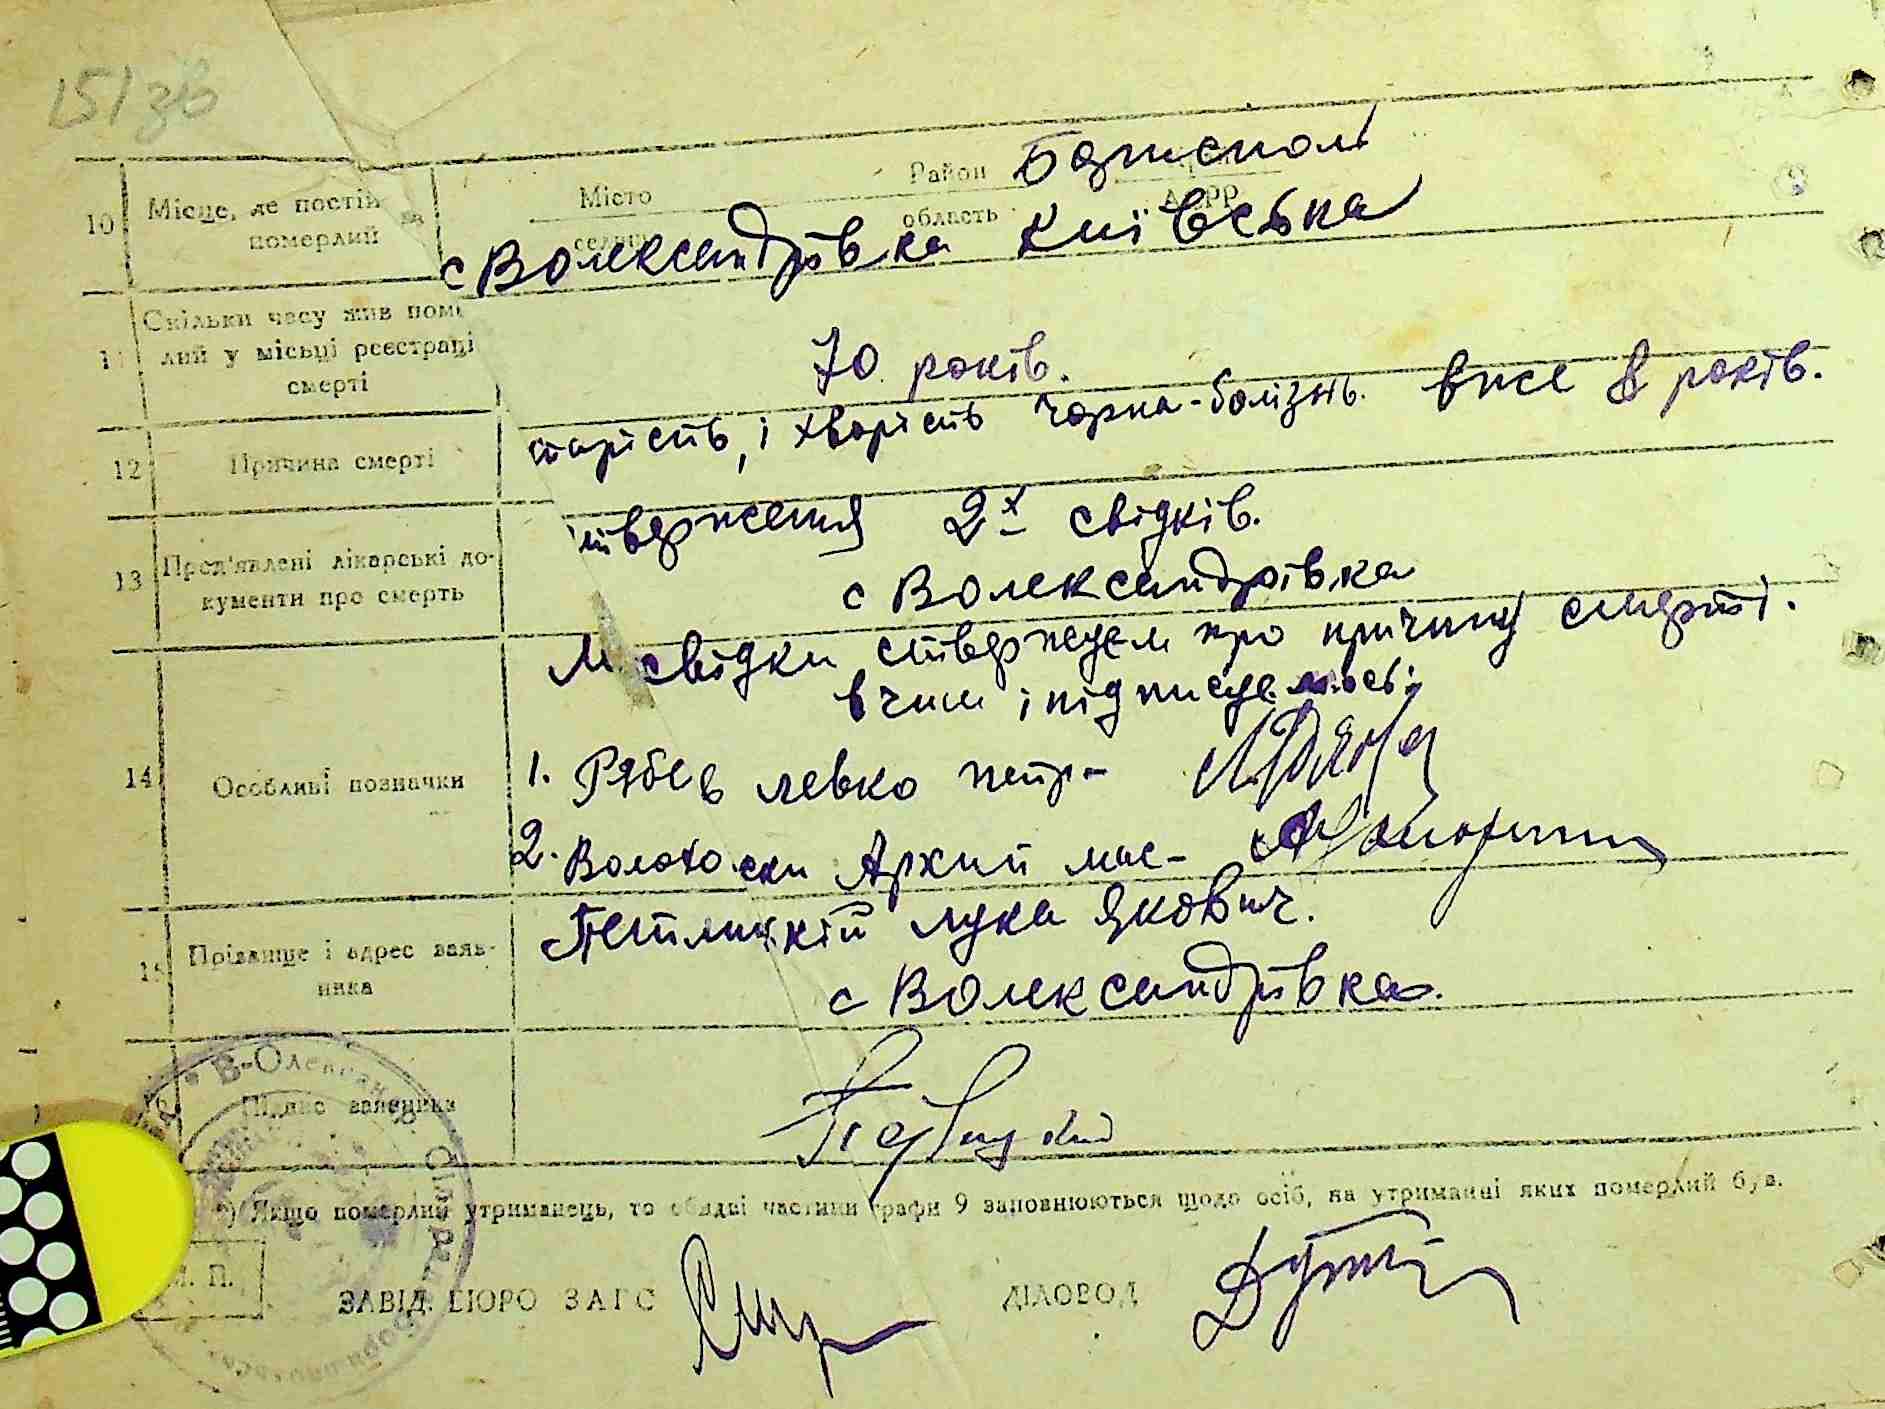 151 зв
10 Місце, де постій померлий
Місто
Район Боришполь
область
АСРР
с Волександрівка Київська
11 Скільки часу жив поме
лий у місьці реєстрації
смерті
70 років.
12 Причина смерті
старість, і хворість чорна-болізнь. висе 8 років.
13 Пред'явлені лікарські до-
кументи про смерть
ствержения 2х свідків.
с Волександрівка
14 Особливі позначки
Ми свідки стверждуем про причину смерті.
в чим і підписуемось:
1. Рябев левко петр-
2. Волохо Архип мас-
15 Прізвище і адрес заяв-
ника
лука Якович.
с Волександрівка.
16 Підпис заявника
*) Якщо померлий утриманець, то обидві частини графи 9 заповнюються щодо осіб, на утриманні яких померлий був.
М. П.
ЗАВІД. БЮРО ЗАГС
ДІЛОВОД